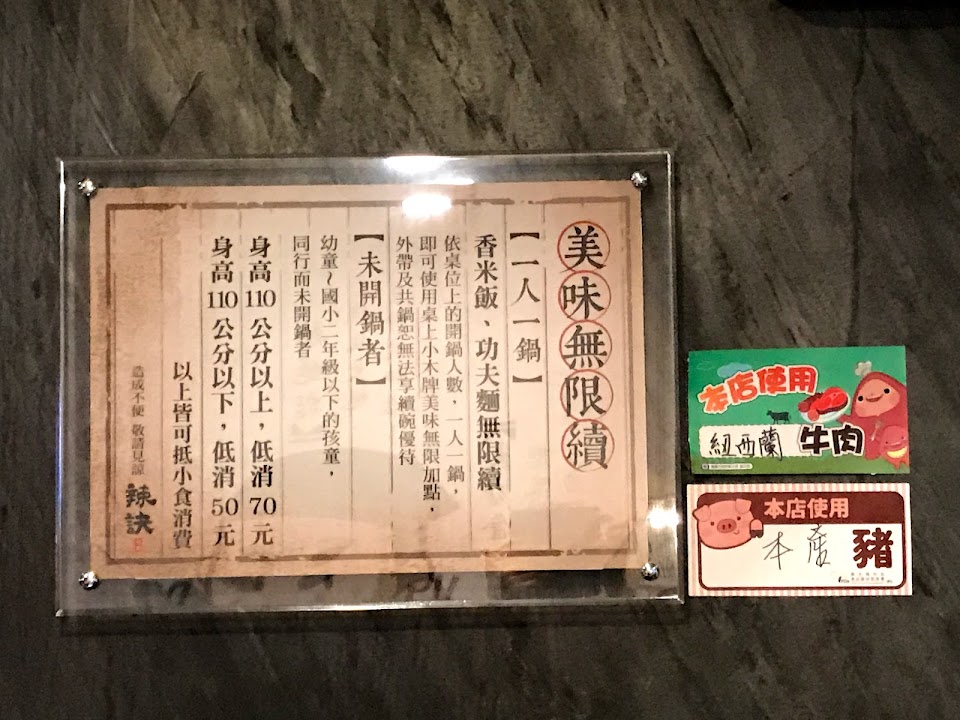 美味無限續
【一人一鍋】
香米飯、功夫麵無限續
依桌位上的開鍋人數，一人一鍋，
即可使用桌上小木牌美味無限加點，
外帶及共鍋恕無法享續碗優待
【未開鍋者】
幼童~國小二年級以下的孩童，
同行而未開鍋者
身高110公分以上，低消70元
身高110公分以下，低消50元
以上皆可抵小食消費
造成不便 敬請見諒
辣訣
本店使用
紐西蘭 牛肉
本店使用
本產 豬